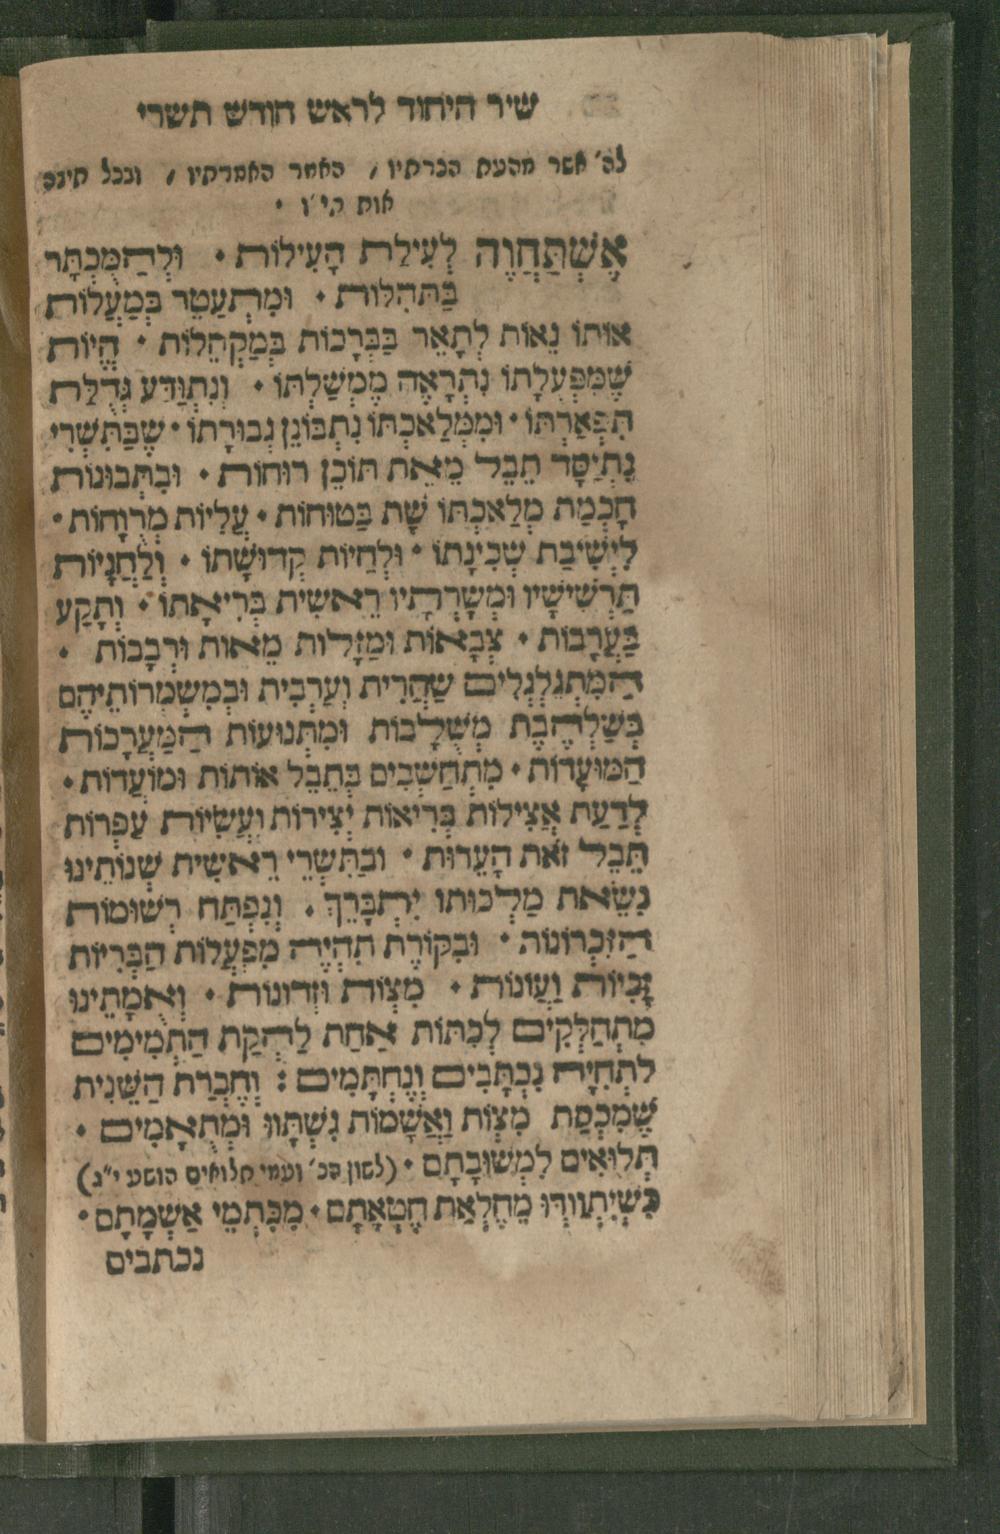 שיר היחוד לראש חודש תשרי
לה׳ אשר מהעת הכרתיו, האמר האמרתיו, ובכל תיבה
אות תי״ו •
אֶשְׁתַּחֲוֶה לְעִילַת הָעִילוֹת • וּלְהַמֻּכְתָּר
בַּתְּהִלּוֹת • וּמִתְעַטֵּר בְּמַעֲלוֹת
אותוֹ נֵאוֹת לְתָאֵר בַּבְּרָכוֹת בְּמַקְהֵלוֹת • הֱיוֹת
שֶׁמִּפְּעֻלָּתוֹ נִתְרָאָה מֶמְשַׁלְתּוֹ • וְנִתְוַדַּע גְּדֻלַּת
תִּפְאַרְתּוֹ • וּמִמְּלַאכְתּוֹ נִתְבּוֹנֵן גְּבוּרָתוֹ • שֶׁבַּתִּשְׁרִי
נִתְיַסָּד תֵבֵל מֵאֵת תּוֹכֵן רוּחוֹת • וּבִתְבוּנוֹת
חָכְמַת מְלַאכְתּוֹ שָׁת בַּטוּחוֹת • עֲלִיּוֹת מְרֻוָחוֹת •
לִישִׁיבַת שְׁכִינָתוֹ • וּלְחַיּוֹת קְדוּשָׁתוֹ • וְלַחֲנָיוֹת
תַּרְשִׁישָׁיו וּמְשָׁרְתָיו רֵאשִׁית בְּרִיאָתוֹ • וְתָקַע
בַּעֲרָבוֹת • צְבָאוֹת וּמַזָּלוֹת מֵאוֹת וּרְבָבוֹת •
הַמִּתְגַּלְגְּלִים שַׁחֲרִית וְעַרְבִית וּבְמִשְׁמְרוֹתֵיהֶם
בְּשַׁלְהֶבֶת מְשֻׁלָּבוֹת וּמִתְּנוּעוֹת הַמַּעֲרָכוֹת
הַמּוּעָדוֹת • מִתְחַשְׁבִים בְּתֵבֵל אוֹתוֹת וּמוֹעֲדוֹת •
לְדַעַת אֲצִילוֹת בְּרִיאוֹת יְצִירוֹת וַעֲשִׂיּוֹת עַפְרוֹת
תֵּבֵל זֹאת הָעֵדוּת • וּבַתִּשְׁרֵי רֵאשִׁית שְׁנוֹתֵינוּ
נִשֵּׂאת מַלְכוּתוֹ יִתְבָּרֵךְ • וְנִפְתַּח רְשׁוּמוֹת
הַזִּכְרוֹנוֹת • וּבִקּוֹרֶת תִּהְיֶה מִפְעֲלוֹת הַבְּרִיּוֹת
זָכִיּוֹת וַעֲוֹנוֹת • מִצְוֹת וּזְדוֹנוֹת • וְאֻמָּתֵינוּ
מִתְחַלְּקִים לְכִתּוֹת אַחַת לַהֲקַת הַתְּמִימִים
לִתְחִיָּה נִכְתָּבִים וְנֶחְתָּמִים : וְחֶבְרַת הַשֵּׁנִית
שֶׁמִּכְסַת מִצְוֹת וַאֲשָׁמוֹת נִשְׁתָּווּ וּמְתֻאָמִים •
תְּלוּאִים לִמְשׁוּבָתָם • (לשון הכ׳ ועמי תלואים הושע י״א)
כְּשֶׁיִּתְוַודּוּ מֵחֶלְאַת חַטָּאתָם • מִכִּתְמֵי אַשְׁמָתָם •
נכתבים